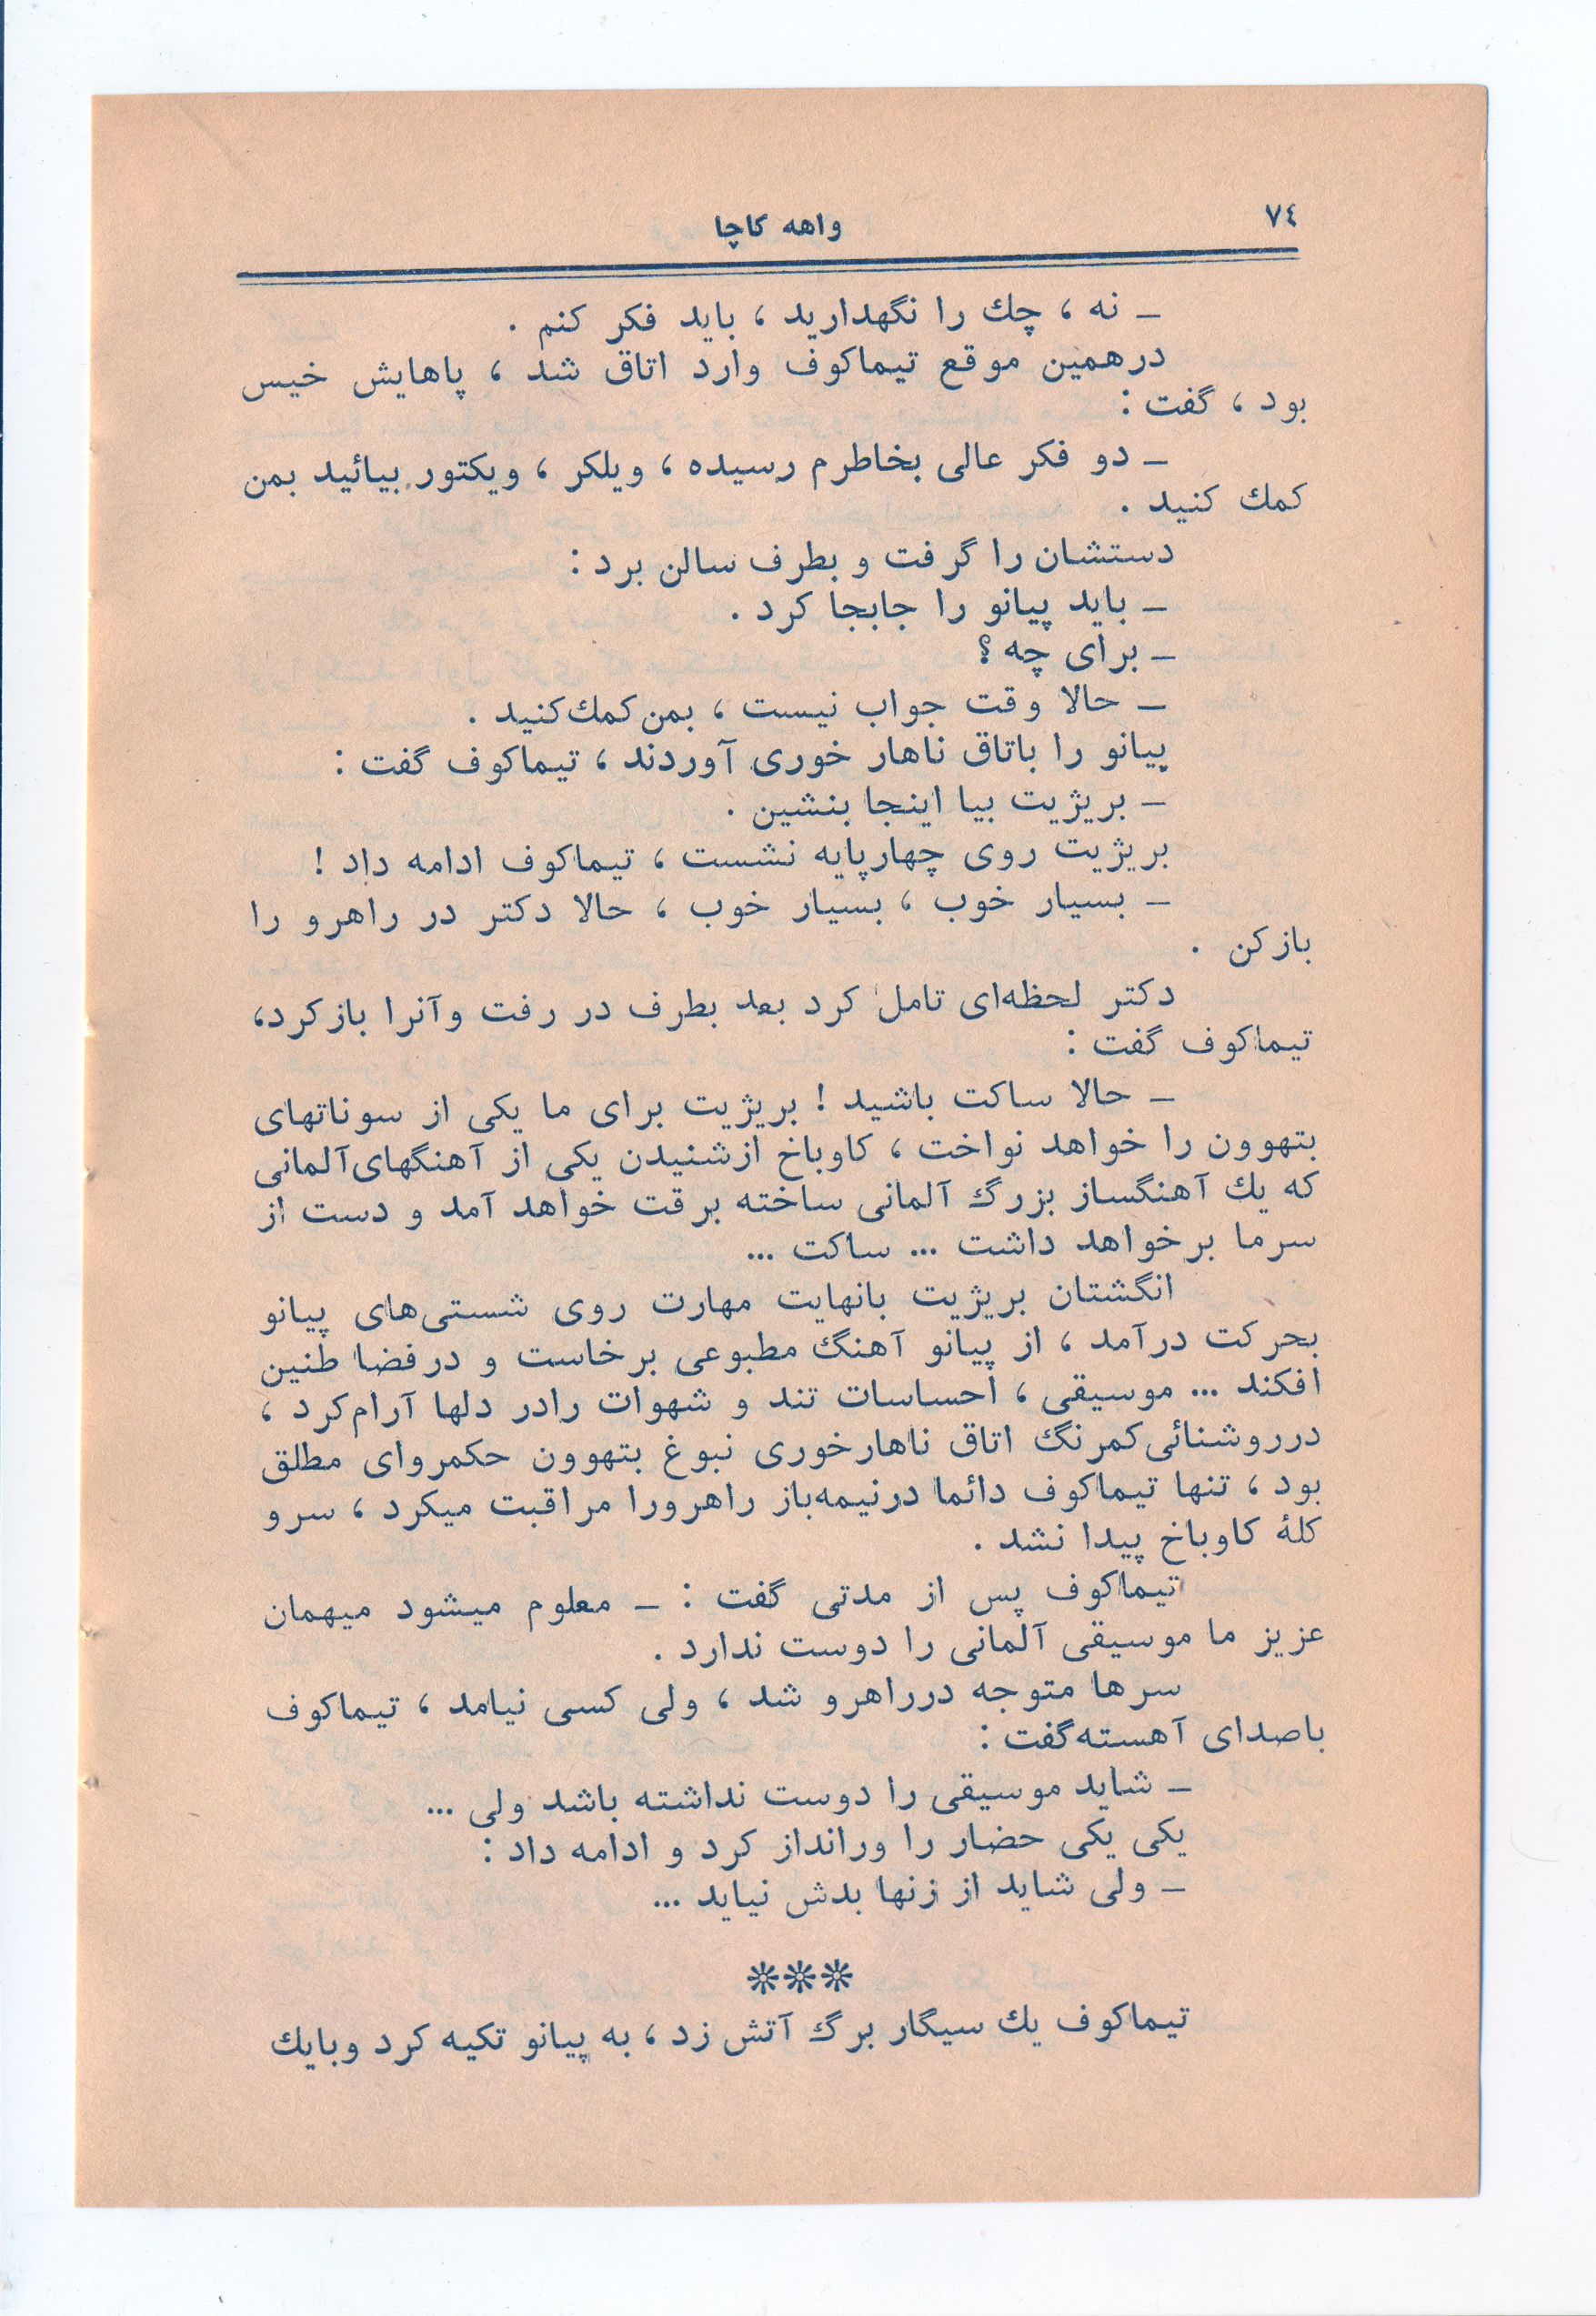 ٧٤
واهه كاچا
ـ نه ، چك را نگهداريد ، بايد فكر كنم .
درهمين موقع تيماكوف وارد اتاق شد ، پاهايش خيس
بود ، گفت :
ـ دو فكر عالى بخاطرم رسيده ، ويلكر ، ويكتور بيائيد بمن
كمك كنيد .
دستشان را گرفت و بطرف سالن برد :
ـ بايد پيانو را جابجا كرد .
ـ براى چه ؟
ـ حالا وقت جواب نيست ، بمن كمك كنيد .
پيانو را باتاق ناهار خورى آوردند ، تيماكوف گفت :
ـ بريژيت بيا اينجا بنشين .
بريژيت روى چهارپايه نشست ، تيماكوف ادامه داد !
ـ بسيار خوب ، بسيار خوب ، حالا دكتر در راهرو را
بازكن .
دكتر لحظه‌اى تامل كرد بعد بطرف در رفت وآنرا بازكرد،
تيماكوف گفت :
ـ حالا ساكت باشيد ! بريژيت براى ما يكى از سوناتهاى
بتهوون را خواهد نواخت ، كاوباخ ازشنيدن يكى از آهنگهاى‌آلمانى
كه يك آهنگساز بزرگ آلمانى ساخته برقت خواهد آمد و دست از
سرما برخواهد داشت ... ساكت ...
انگشتان بريژيت بانهايت مهارت روى شستى‌هاى پيانو
بحركت درآمد ، از پيانو آهنگ مطبوعى برخاست و درفضا طنين
افكند ... موسيقى ، احساسات تند و شهوات رادر دلها آرام‌كرد ،
درروشنائى‌كمرنگ اتاق ناهارخورى نبوغ بتهوون حكمرواى مطلق
بود ، تنها تيماكوف دائما درنيمه‌باز راهرورا مراقبت ميكرد ، سرو
كلهٔ كاوباخ پيدا نشد .
تيماكوف پس از مدتى گفت : ـ معلوم ميشود ميهمان
عزيز ما موسيقى آلمانى را دوست ندارد .
سرها متوجه درراهرو شد ، ولى كسى نيامد ، تيماكوف
باصداى آهسته‌گفت :
ـ شايد موسيقى را دوست نداشته باشد ولى ...
يكى يكى حضار را ورانداز كرد و ادامه داد :
ـ ولى شايد از زنها بدش نيايد ...
***
تيماكوف يك سيگار برگ آتش زد ، به پيانو تكيه كرد وبايك